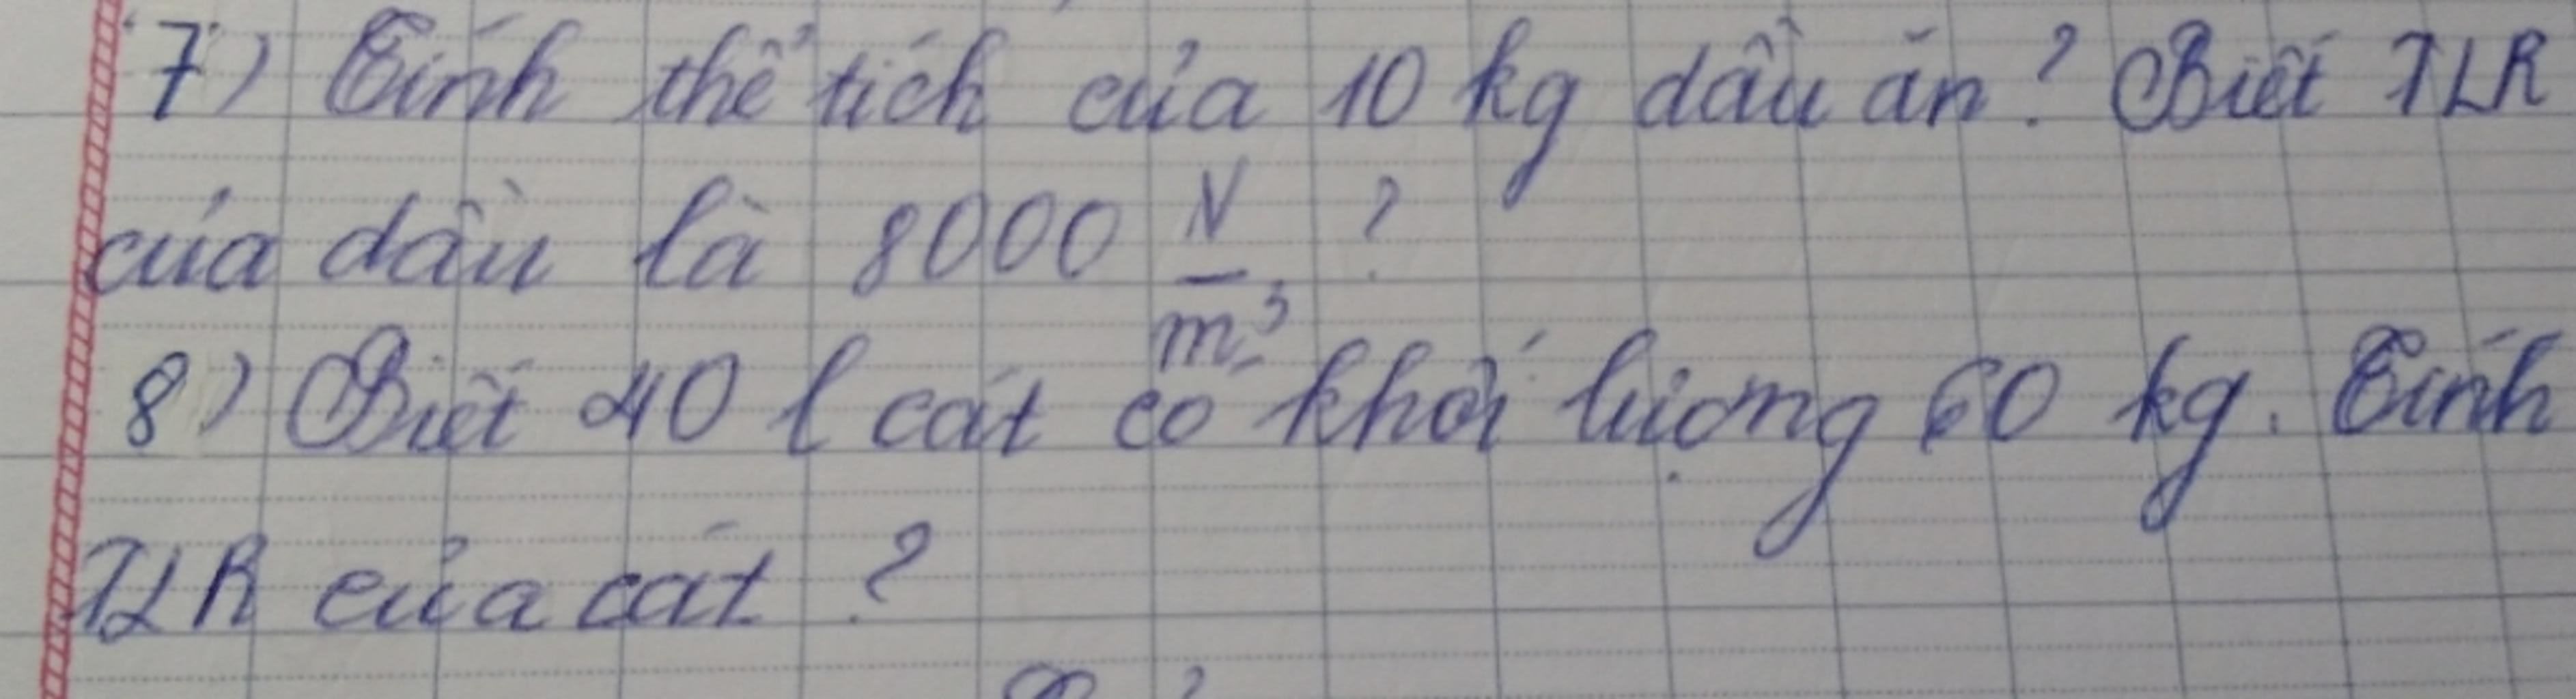 7) Tính thể tích của 10 kg dầu ăn? Biết TLR
của dầu là 8000 N/m³ ?
8) Biết 40 l cát có khối lượng 60 kg. Tính
TLR của cát ?